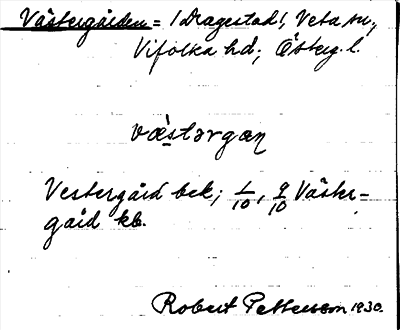 Västergården = /Dragestad/, Veta sn.,
Vifolka hd; Österg. l.
væstərgæn
Vestergård bek; 1/10, 9/10 Väster-
gård kb.
Robert Petterson 1930.